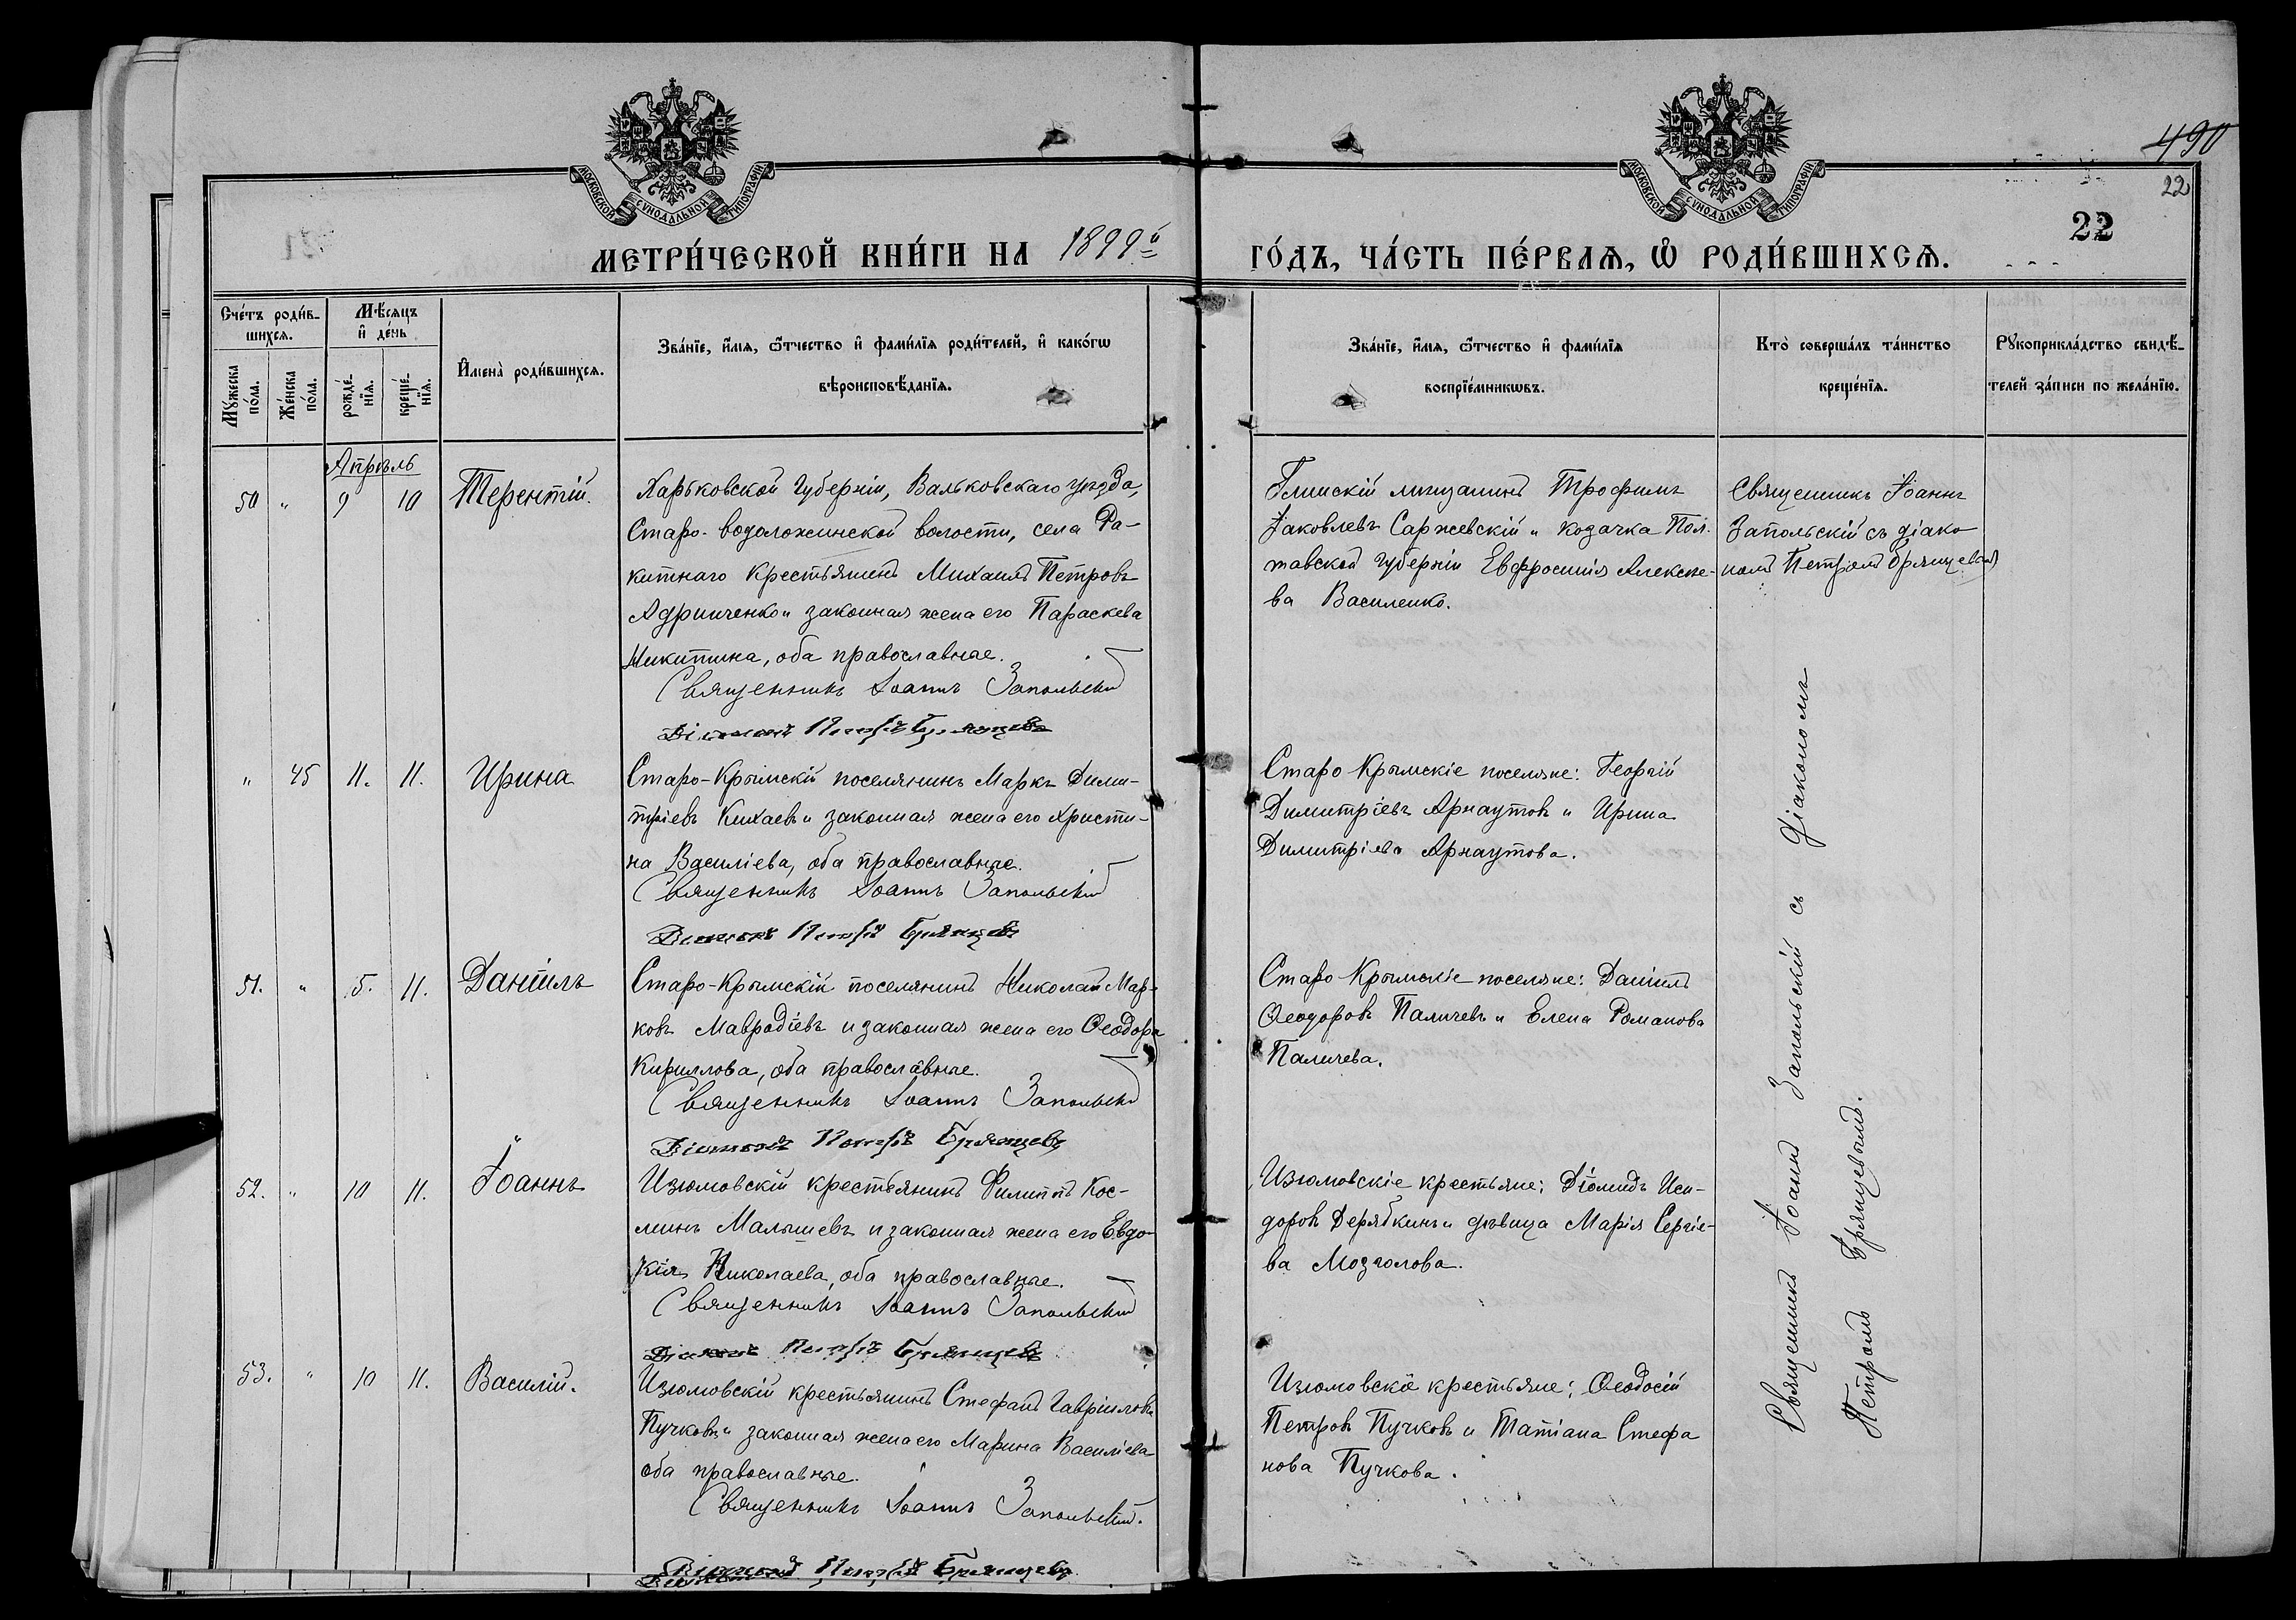 490
22
22
МОСКОВСКОЙ СѴНОДАЛЬНОЙ ТИПОГРАФІИ
МОСКОВСКОЙ СѴНОДАЛЬНОЙ ТИПОГРАФІИ
МЕТРИ́ЧЕСКОЙ КНИ́ГИ НА 1899й
ГО́ДЪ, ЧА́СТЬ ПЕ́РВАѦ, Ѽ РОДИ́ВШИХСѦ.
Сче́тъ роди́в-
шихсѧ.
Мꙋ́жеска по́ла.
Же́нска по́ла.
Мѣ́сѧцъ и҆ де́нь
рожде́-нїѧ.
креще́-нїѧ.
И҆мена̀ роди́вшихсѧ.
Зва́нїе, и҆́мѧ, ѻ҆́тчество и҆ фами́лїѧ роди́телей, и҆ како́гѡ
вѣроисповѣ́данїѧ.
Зва́нїе, и҆́мѧ, ѻ҆́тчество и҆ фами́лїѧ
воспрїе́мникѡвъ.
Кто̀ соверша́лъ та́инство
креще́нїѧ.
Рꙋкоприкла́дство свидѣ́-
телей за́писи по жела́нїю.
Апрѣль
50 " 9 10 Терентій.
Харьковской Губерніи, Вальковскаго уѣзда,
Старо-водоложинской волости, села Ра-
китнаго крестьянинъ Михаилъ Петровъ
Адринченко и законная жена его Параскева
Никитина, оба православные.
Священникъ Іоаннъ Запольскій
Діаконъ Петръ Брянцевъ
мѣщанинъ Трофимъ
Іаковлевъ Саржевскій и козачка Пол-
тавской губерніи Евфросинія Алексѣе-
ва Василенко.
Священникъ Іоаннъ
Запольскій съ діако
номъ Петромъ Брянцевымъ
" 45 11. 11. Ирина
Старо-Крымскій поселянинъ Маркъ Дими-
тріевъ Кихаевъ и законная жена его Христи-
на Василіева, оба православные.
Священникъ Іоаннъ Запольскій
Діаконъ Петръ Брянцевъ
Старо Крымскіе поселяне: Георгій
Димитріевъ Арнаутовъ и Ирина
Димитріева Арнаутова.
51. " 5. 11. Даніилъ
Старо-Крымскій поселянинъ Николай Мар-
ковъ Мавродіевъ и законная жена его Ѳеодора
Кириллова, оба православные.
Священникъ Іоаннъ Запольскій
Діаконъ Петръ Брянцевъ
Старо Крымскіе поселяне: Даніилъ
Ѳеодоровъ Паличевъ и Елена Романова
Паличева.
52. " 10 11. Іоаннъ
Изюмовскій крестьянинъ Филиппъ Кос-
минъ Малышевъ и законная жена его Евдо-
кія Николаева, оба православные.
Священникъ Іоаннъ Запольскій
Діаконъ Петръ Брянцевъ
Изюмовскіе крестьяне: Діомидъ Иси-
доровъ Дерябкинъ и дѣвица Марія Сергіе-
ва Мозголова.
53. " 10 11. Василій.
Изюмовскій крестьянинъ Стефанъ Гавріиловъ
Пучковъ и законная жена его Марина Василіева
оба православные.
Священникъ Іоаннъ Запольскій.
Діаконъ Петръ Брянцевъ
Изюмовскіе крестьяне: Ѳеодосій
Петровъ Пучковъ и Татіана Стефа
нова Пучкова.
Священникъ Іоаннъ Запольскій съ діакономъ
Петромъ Брянцевымъ.